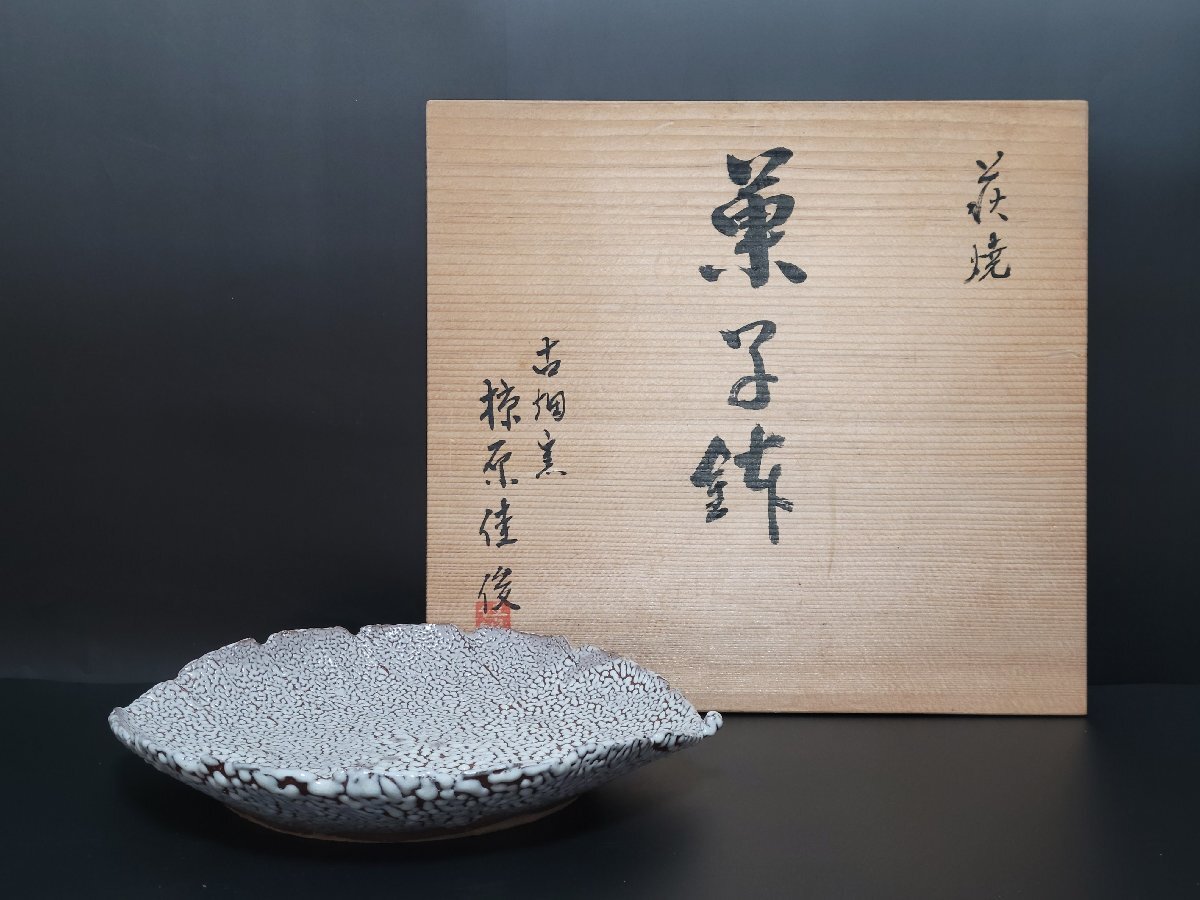 萩焼
菓子鉢
古畑窯
椋原佳俊